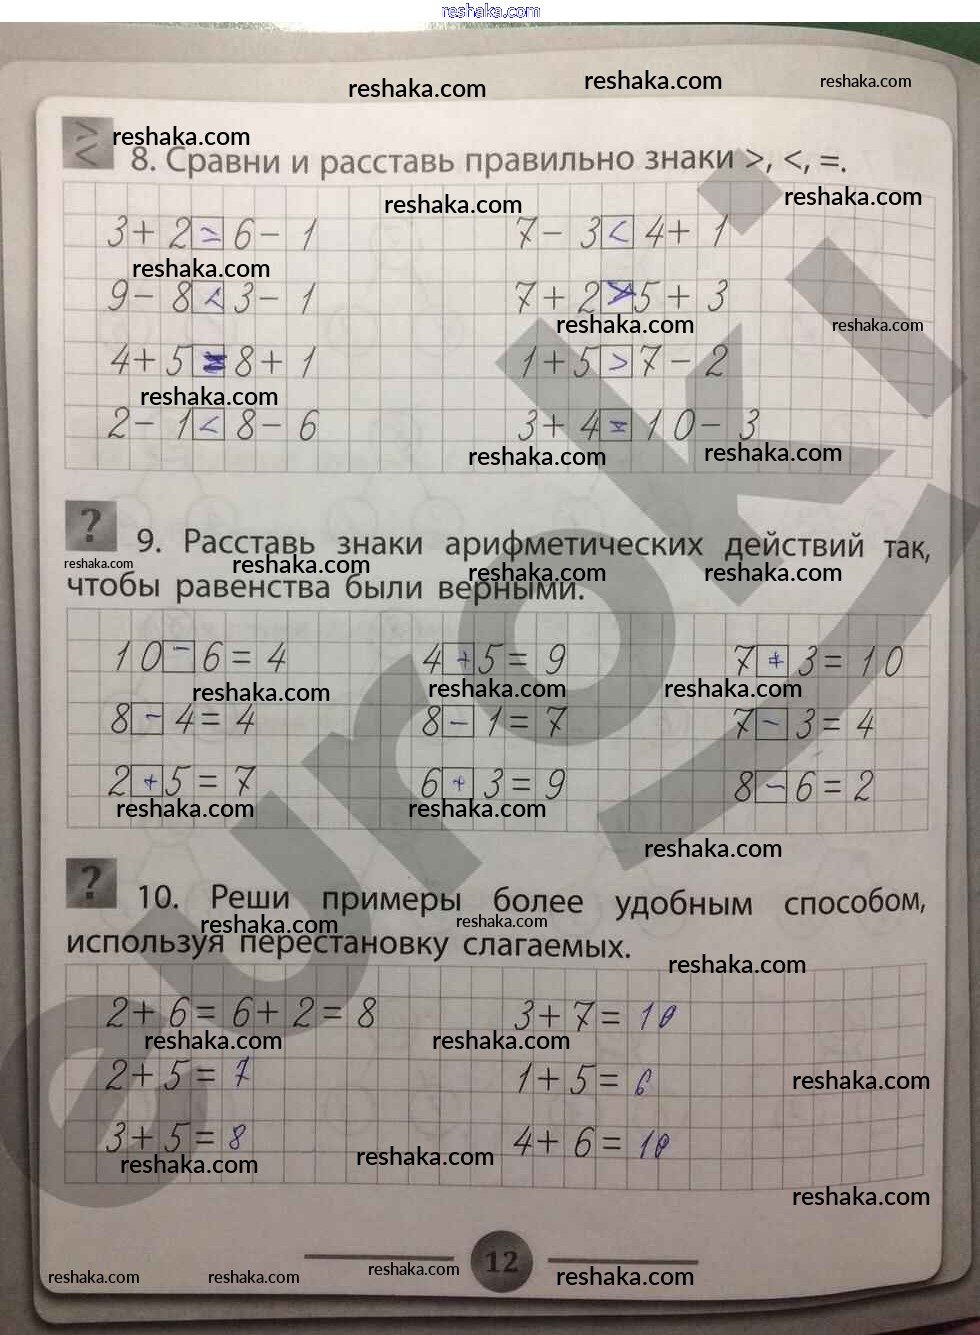 reshaka.com
reshaka.com reshaka.com reshaka.com
reshaka.com
> < 8. Сравни и расставь правильно знаки >, <, =.
reshaka.com reshaka.com
3 + 2 = 6 - 1 7 - 3 < 4 + 1
reshaka.com
9 - 8 < 3 - 1 7 + 2 > 5 + 3
reshaka.com reshaka.com
4 + 5 = 8 + 1 1 + 5 > 7 - 2
reshaka.com
2 - 1 < 8 - 6 3 + 4 = 10 - 3
reshaka.com reshaka.com
? 9. Расставь знаки арифметических действий так,
reshaka.com reshaka.com reshaka.com reshaka.com
чтобы равенства были верными.
10 - 6 = 4 4 + 5 = 9 7 + 3 = 10
reshaka.com reshaka.com reshaka.com
8 - 4 = 4 8 - 1 = 7 7 - 3 = 4
2 + 5 = 7 6 + 3 = 9 8 - 6 = 2
reshaka.com reshaka.com
reshaka.com
? 10. Реши примеры более удобным способом,
reshaka.com reshaka.com
используя перестановку слагаемых.
reshaka.com
2 + 6 = 6 + 2 = 8 3 + 7 = 10
reshaka.com reshaka.com
2 + 5 = 7 1 + 5 = 6
reshaka.com
3 + 5 = 8 4 + 6 = 10
reshaka.com reshaka.com
reshaka.com
12
reshaka.com reshaka.com reshaka.com reshaka.com
euroki